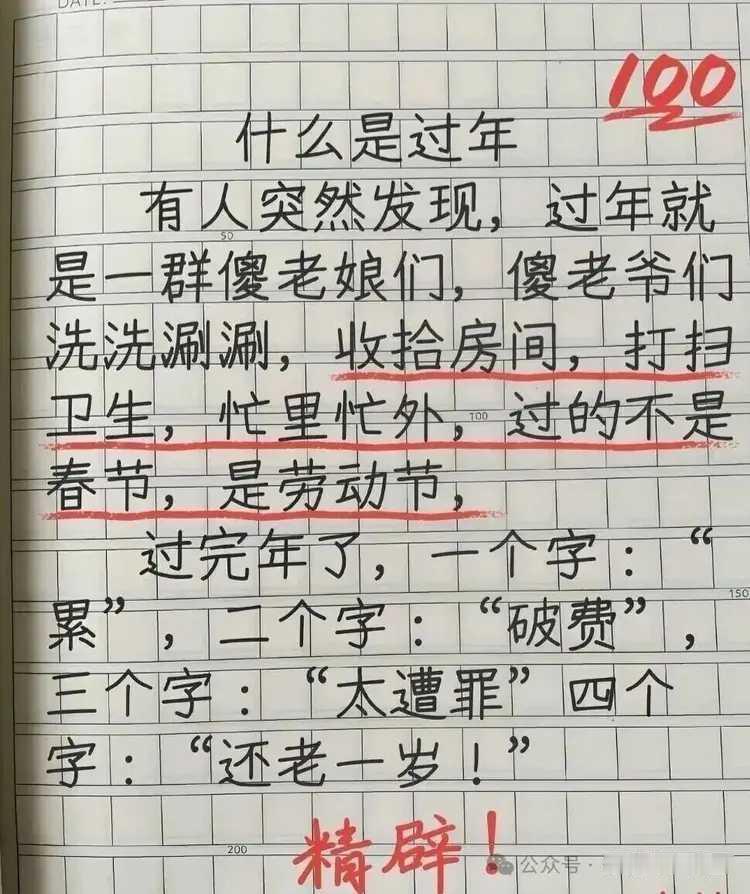 DATE:
100
什么是过年
有人突然发现，过年就
50
是一群傻老娘们，傻老爷们
洗洗涮涮，收拾房间，打扫
卫生，忙里忙外，过的不是
100
春节，是劳动节，
过完年了，一个字：“
150
累”，二个字：“破费”，
三个字：“太遭罪”四个
字：“还老一岁！”
200
精辟！
公众号·